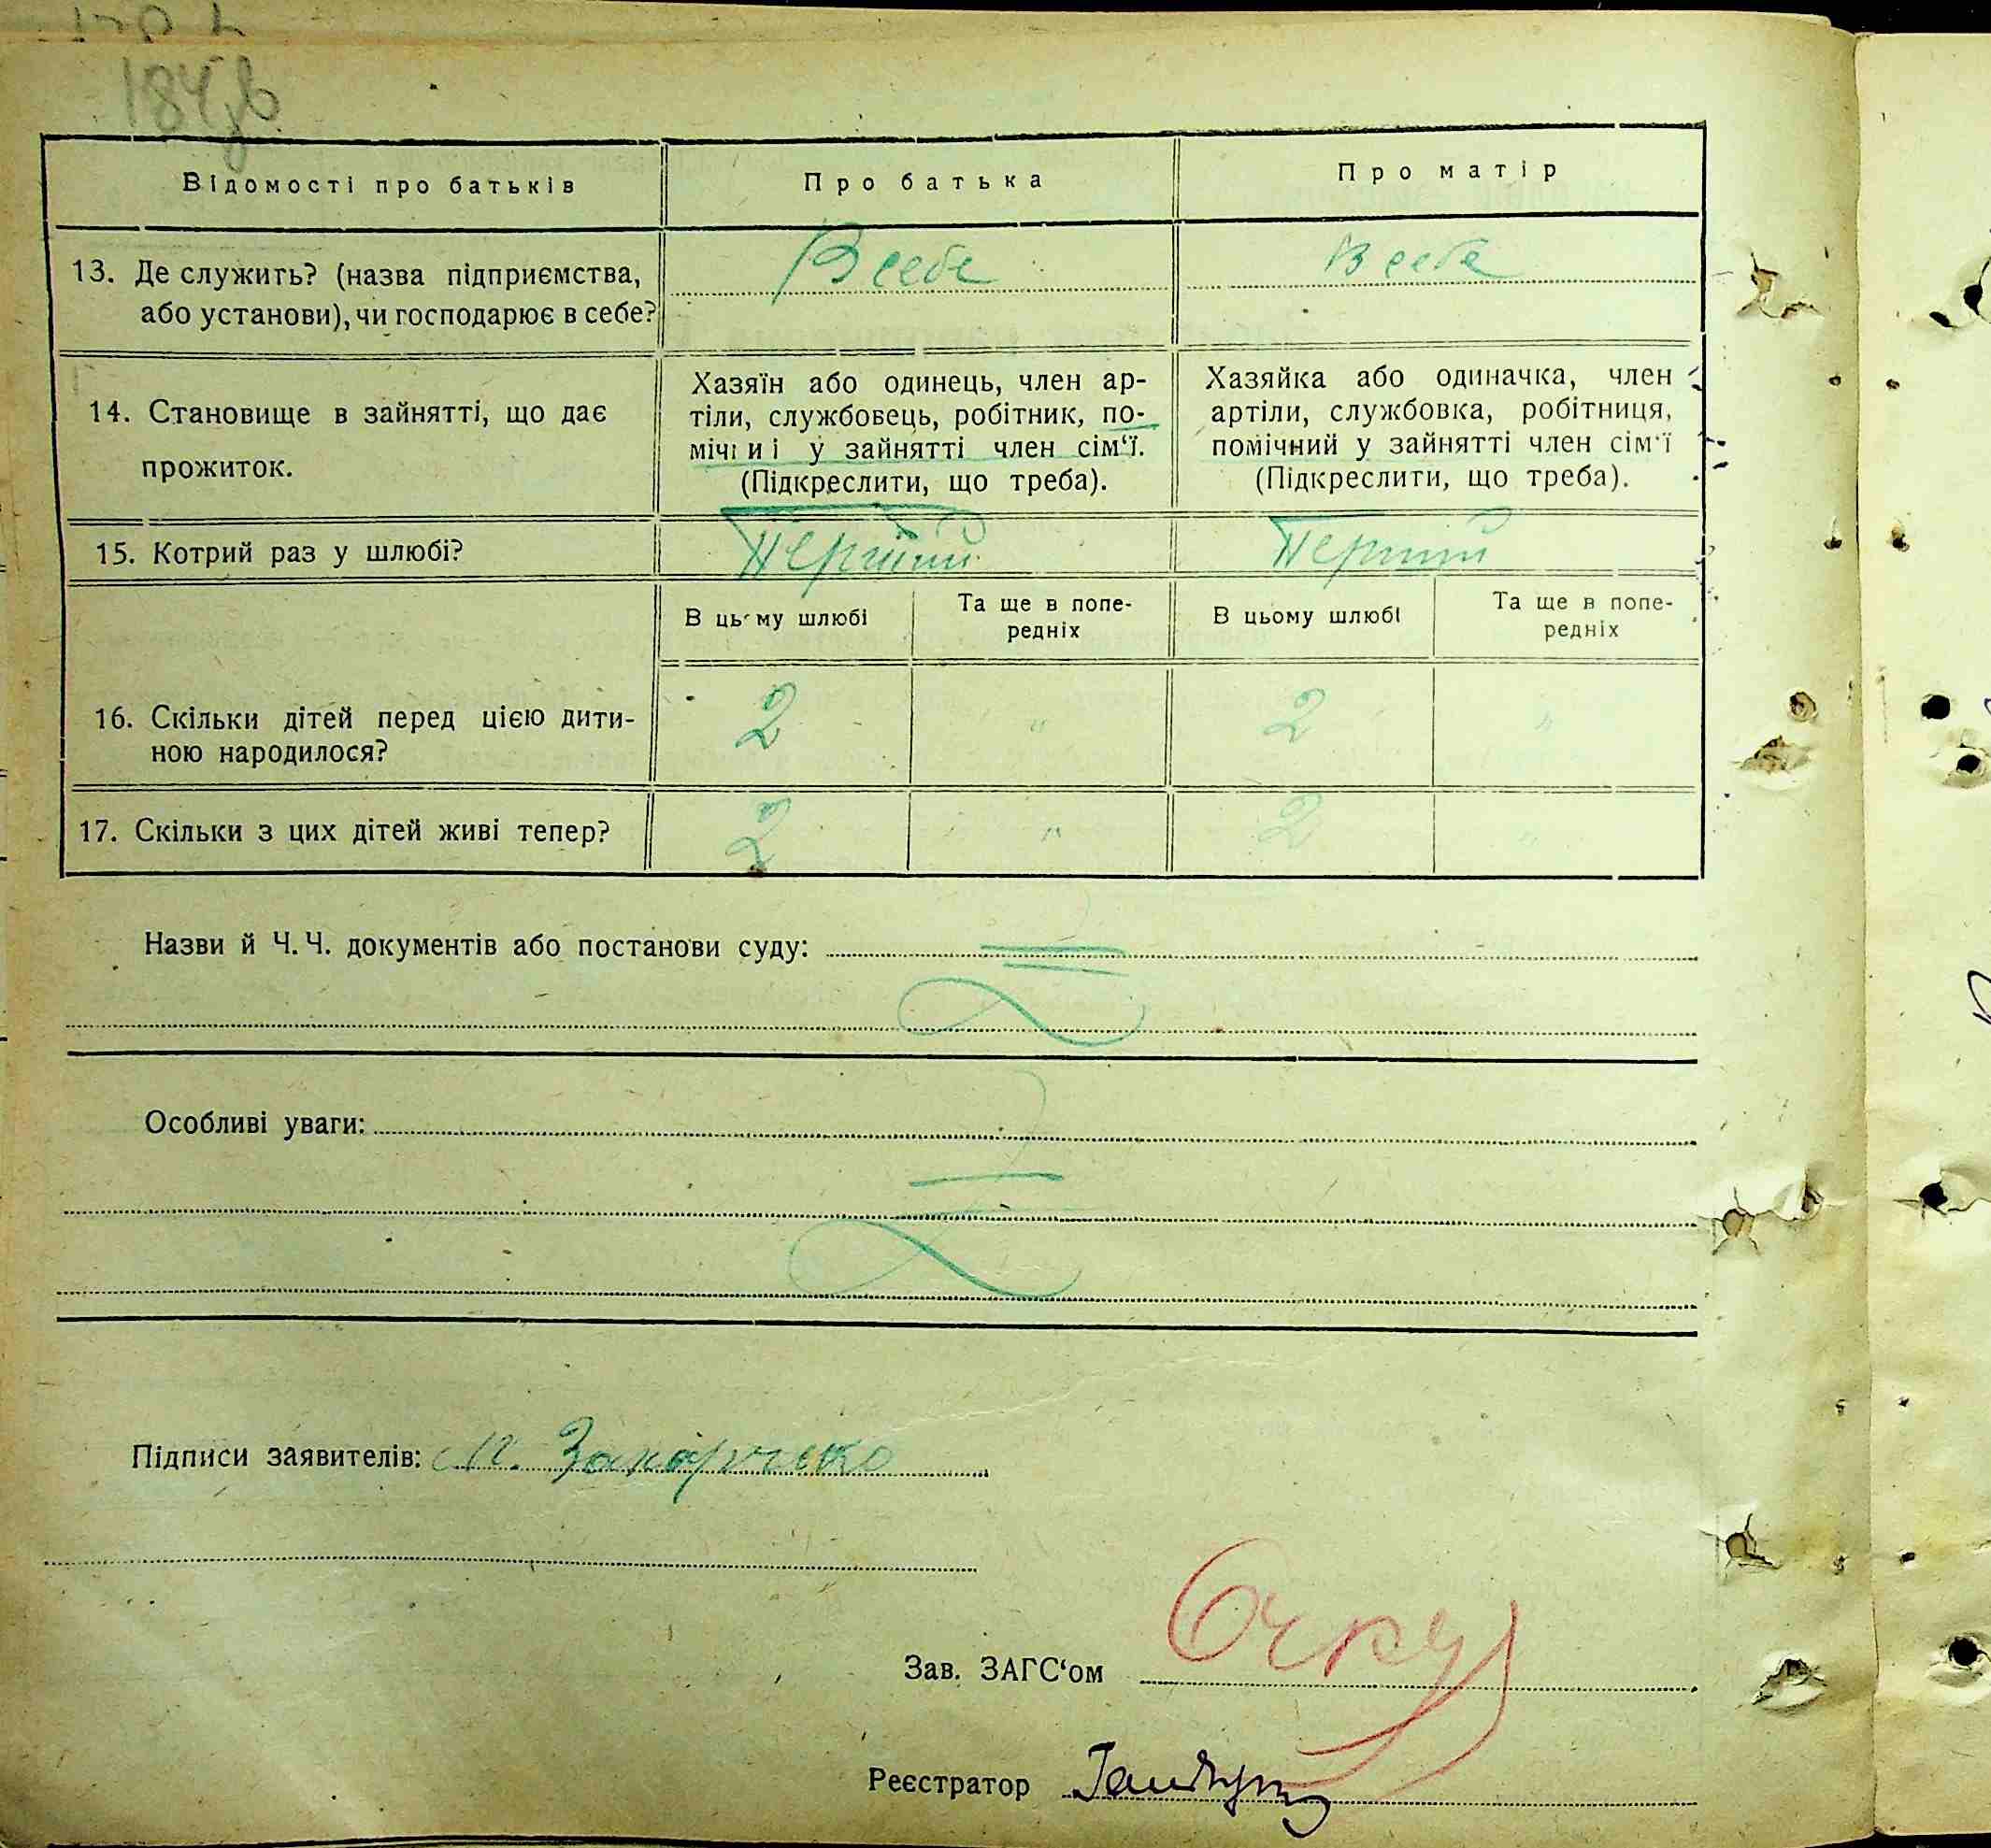 184зв
Відомості про батьків
Про батька
Про матір
13. Де служить? (назва підприємства,
або установи), чи господарює в себе?
В себе
В себе
14. Становище в зайнятті, що дає
прожиток.
Хазяїн або одинець, член ар-
тіли, службовець, робітник, по-
мічниі у зайнятті член сім‘ї.
(Підкреслити, що треба).
Хазяйка або одиначка, член
артіли, службовка, робітниця,
помічний у зайнятті член сім‘ї
(Підкреслити, що треба).
15. Котрий раз у шлюбі?
Перший
Перший
В цьому шлюбі
Та ще в попе-
редніх
В цьому шлюбі
Та ще в попе-
редніх
16. Скільки дітей перед цією дити-
ною народилося?
2 " 2 "
17. Скільки з цих дітей живі тепер?
2 " 2 "
Назви й Ч. Ч. документів або постанови суду:
Особливі уваги:
Підписи заявителів: М. Захарченко
Зав. ЗАГС‘ом
Реєстратор